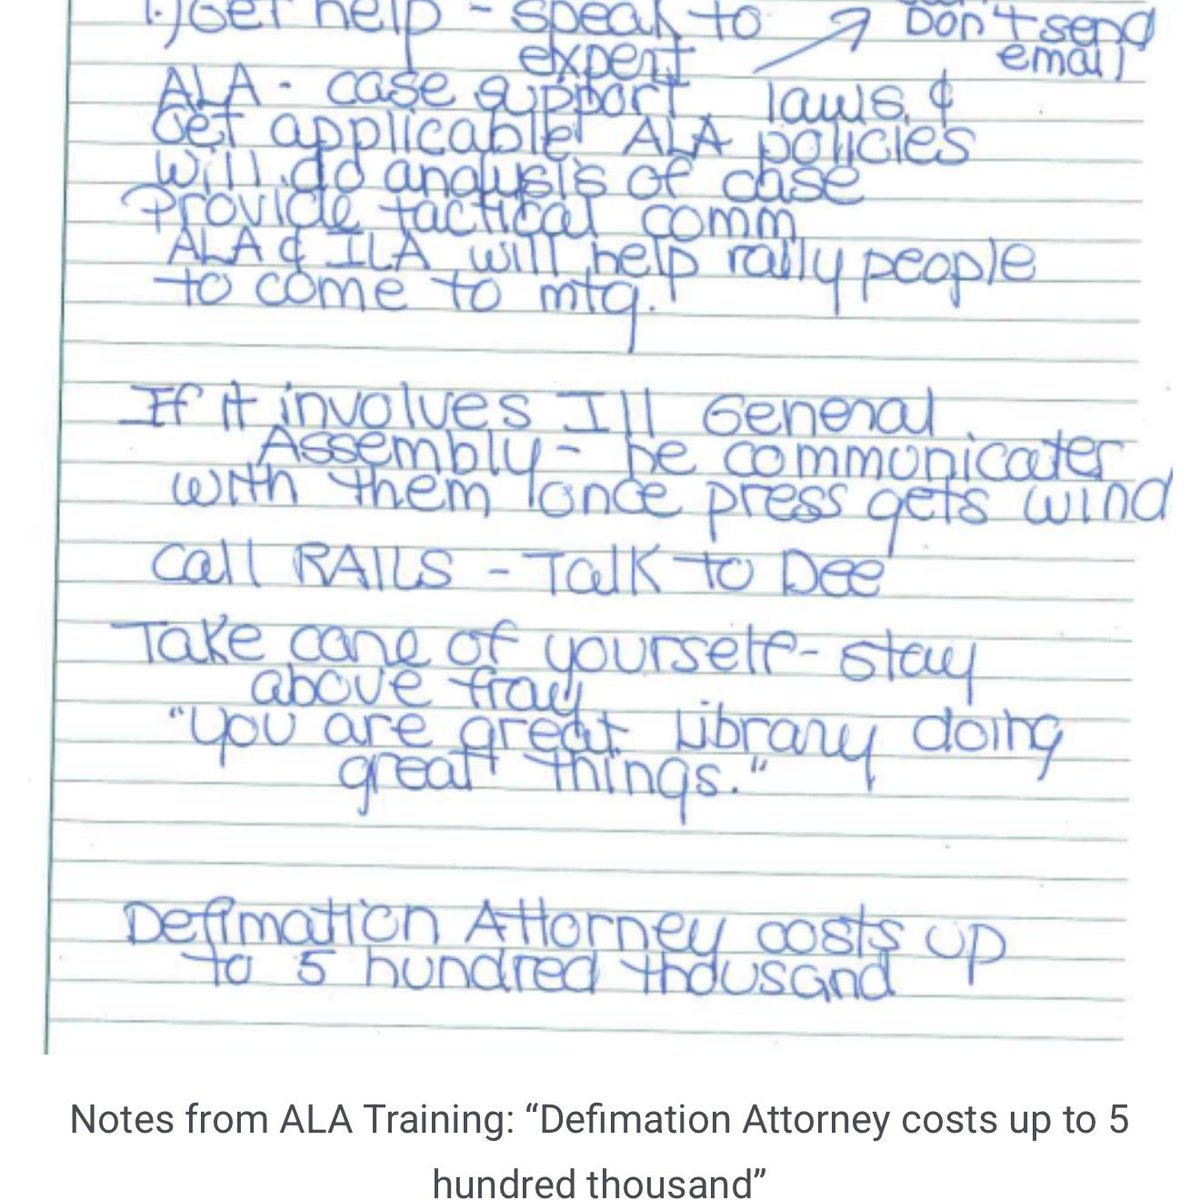 1.) Get help - speak to
expert
Don't send
email
ALA - case support
laws, &
Get applicable ALA policies
will do analysis of case
Provide tactical comm
ALA & ILA will help rally people
to come to mtg.
If it involves Ill General
Assembly - be communicater
with them once press gets wind
Call RAILS - Talk to Dee
Take care of yourself - stay
above fray
"you are great Library doing
great things."
Defimation Attorney costs up
to 5 hundred thousand
Notes from ALA Training: “Defimation Attorney costs up to 5
hundred thousand”